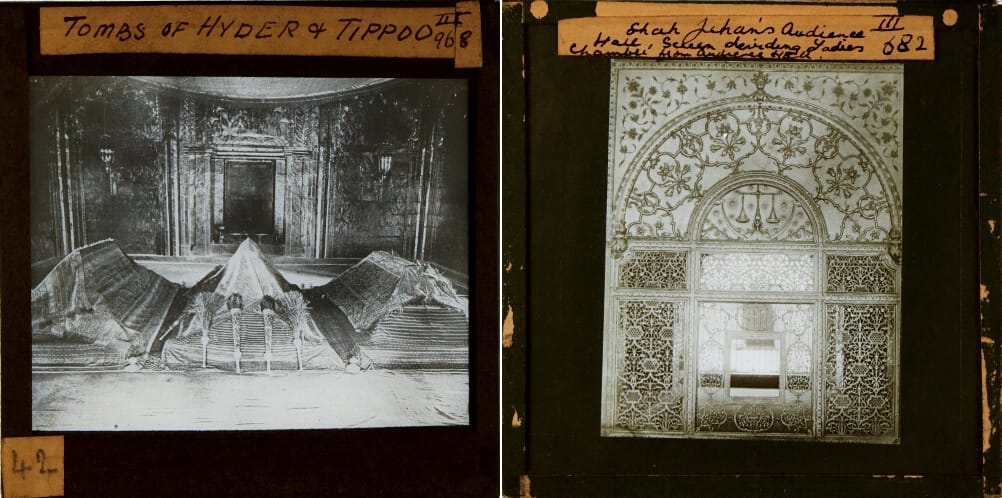 TOMBS OF HYDER & TIPPOO III 968
42
Shah Jihan's Audience III
Hall, Screen deviding Ladies 682
Chamber from Audience Hall.